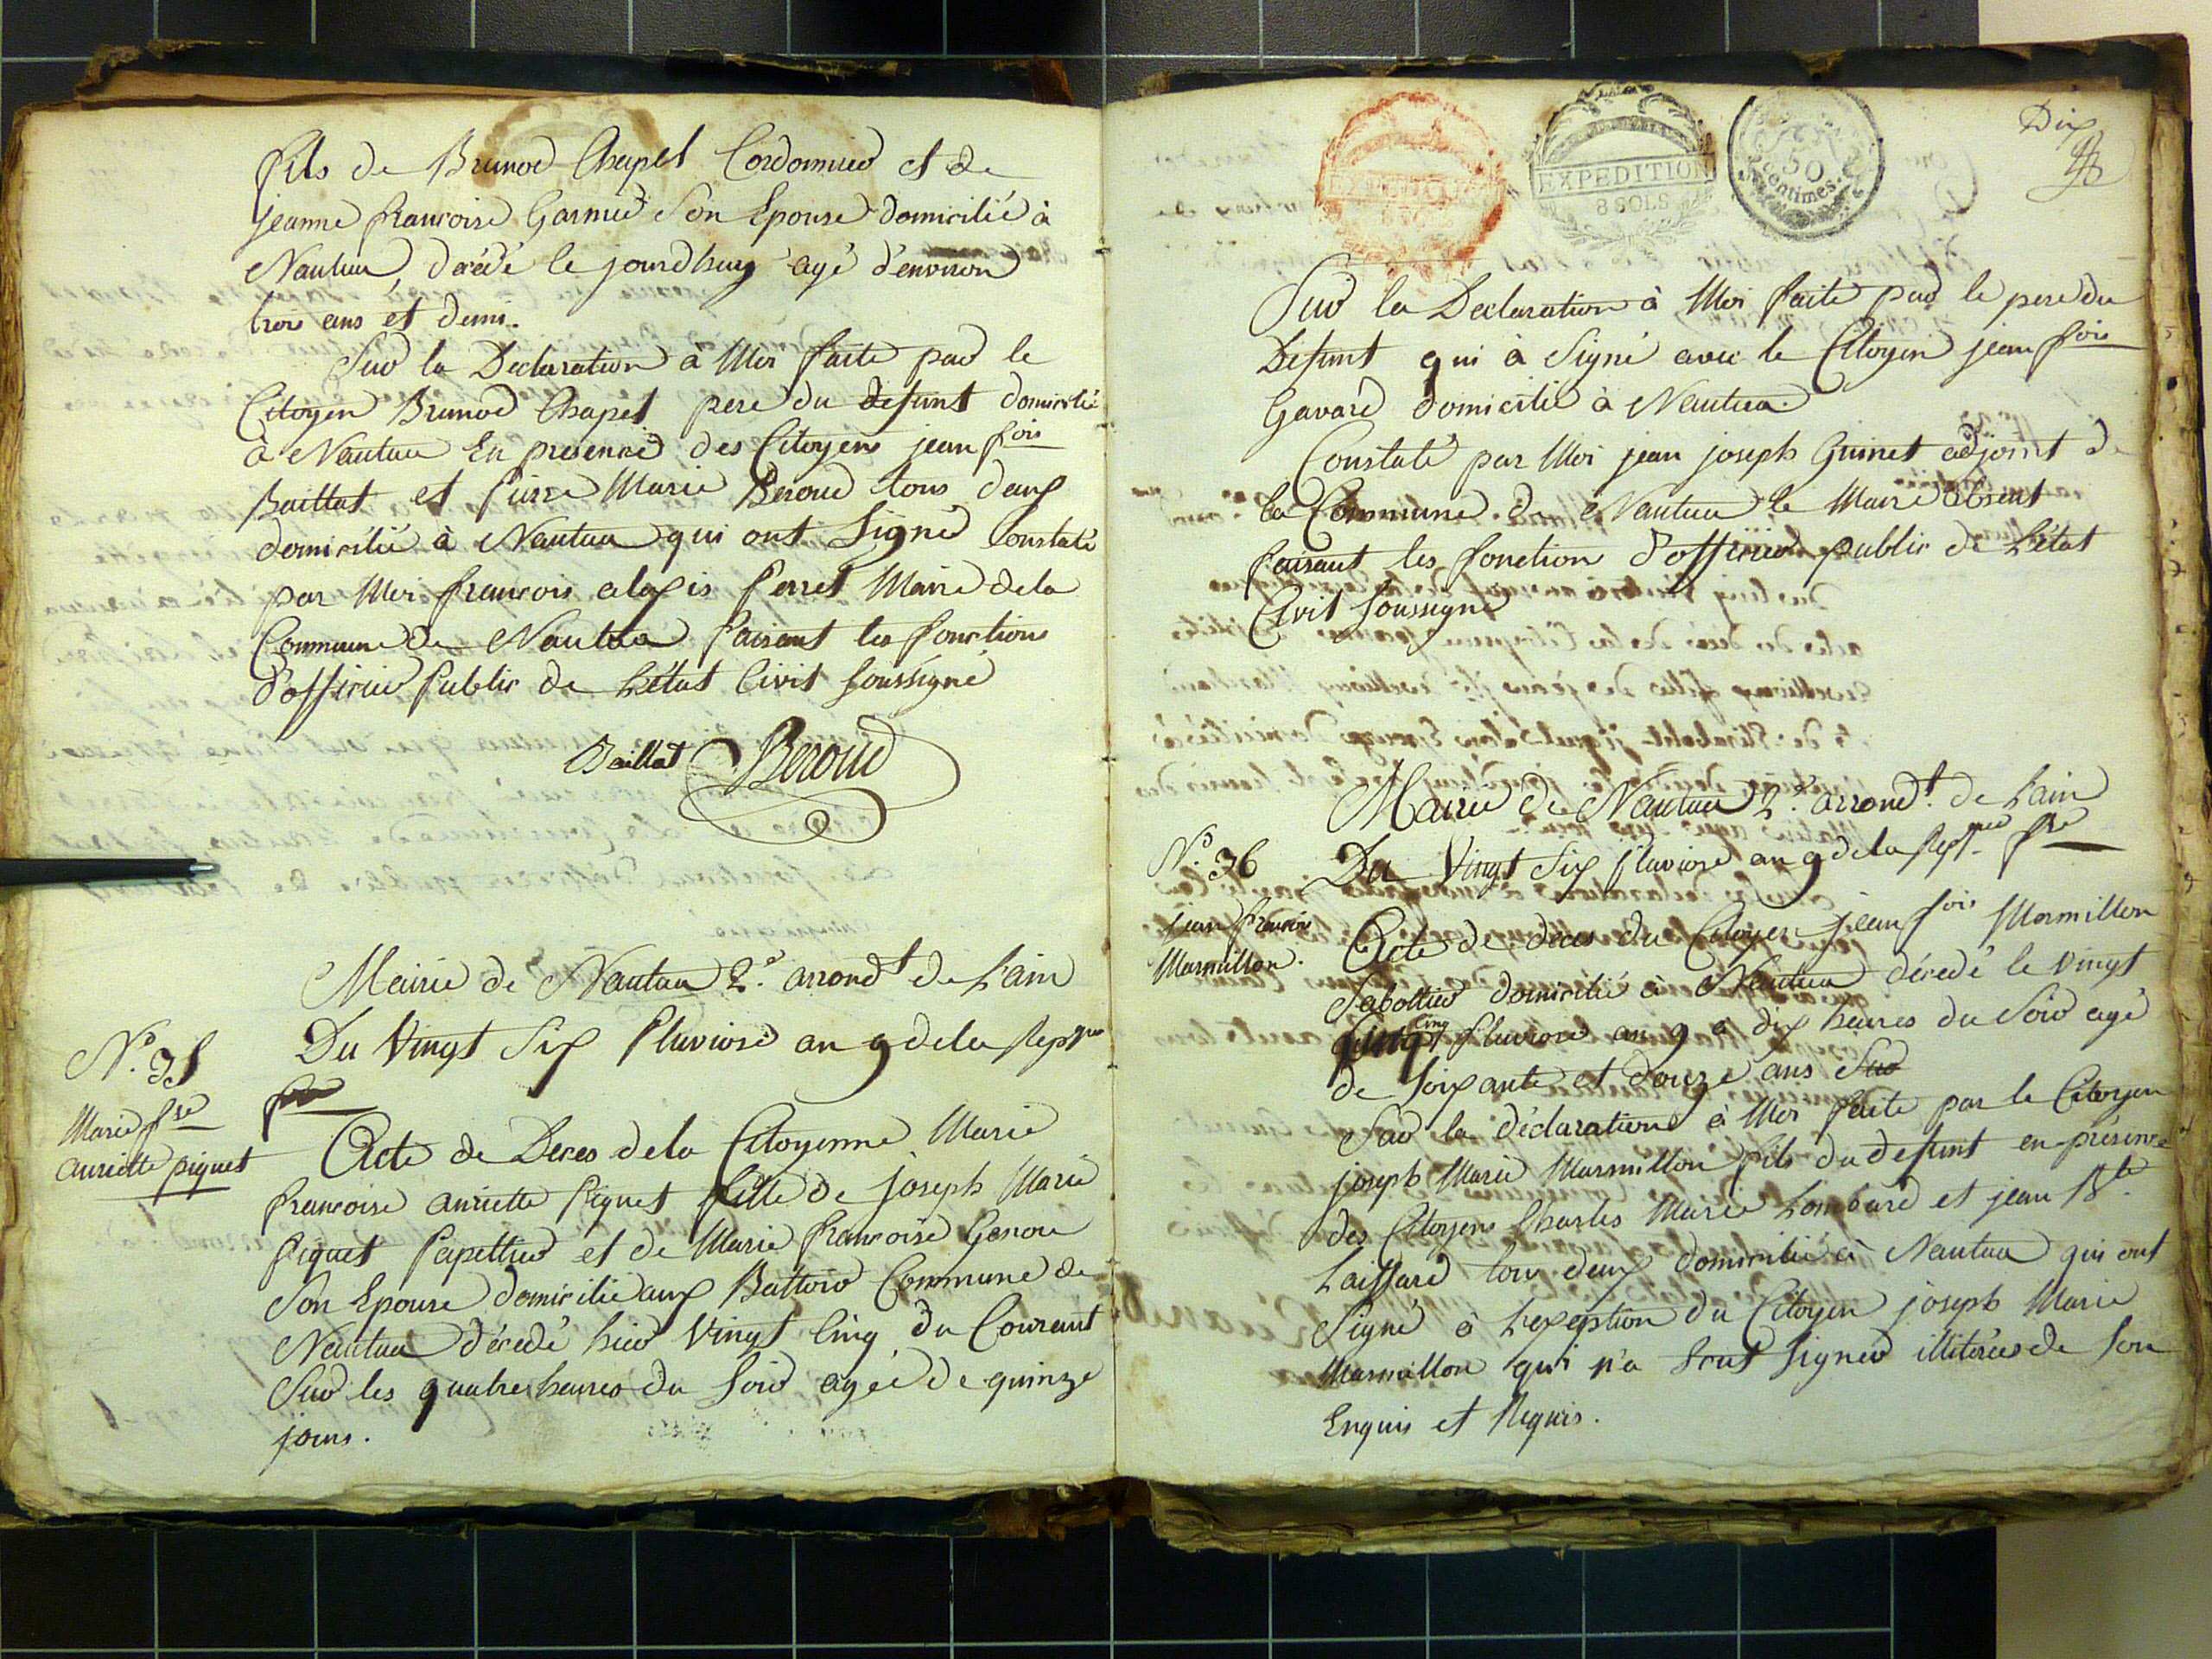 fils de Brunod Chapel Cordonnier et de
jeanne francoise Garnier Son Epouse domicilié à
Nantua, décédé le jourdhuy agé d'environ
trois ans et demi.
Sur la Declaration à Moi faite par le
Citoyen Brunod Chapel pere du defunt domicilié
à Nantua En presence des Citoyens jean fois
Baillat et Pierre Marie Beroud tous deux
domicilié à Nantua qui ont Signé Constaté
par Moi francois alexis Perret Maire dela
Commune de Nantua faisant les fonctions
d'officier Public de L'état Civil Soussigné
Baillat Beroud
Mairie de Nantua 2.e arrondt de L'ain
N.º 35
Du Vingt Six Pluviose an 9 dela Repque
fse
Marie fse
auriette piquet
Acte de Deces dela Citoyenne Marie
francoise auriette Piquet fille de joseph Marie
Piquet Papettier et de Marie francoise
Son Epouse domicilié aux Battoir Commune de
Nantua décedé hier Vingt Cinq du Courant
Sur les quatre heures du Soir agée de quinze
jours.
Dix
EXPEDITION
8 SOLS
EXPEDITION
8 SOLS
50
Centimes.
Sur la Declaration à Moi faite par le pere du
Defunt qui à Signé avec le Citoyen jean fois
Gavard domicilié à Nantua.
Constaté par Moi jean joseph Guinet adjoint de
la Commune de Nantua le Maire absent
faisant les fonction d'officier public de L'état
Civil Soussigné
Mairie de Nantua 2.e arrondt. de L'ain
N.º 36
Du Vingt Six Pluviose an 9 dela Repque fse
jean francois
Marmillon.
Acte de deces du Citoyen jean fois Marmillon
Sabottier domicilié à Nantua décedé le Vingt
Cinq Pluviose an 9 à dix heures du Soir agé
de Soixante et douze ans Sur
Sur la déclaration à Moi faite par le Citoyen
joseph Marie Marmillon fils du defunt en présence
des Citoyens Charles Marie Lombard et jean Bte
Laissard tous deux domicilié à Nantua qui ont
Signé à L'exeption du Citoyen joseph Marie
Marmillon qui n'a Scut Signer de Son
Enquis et Requis.